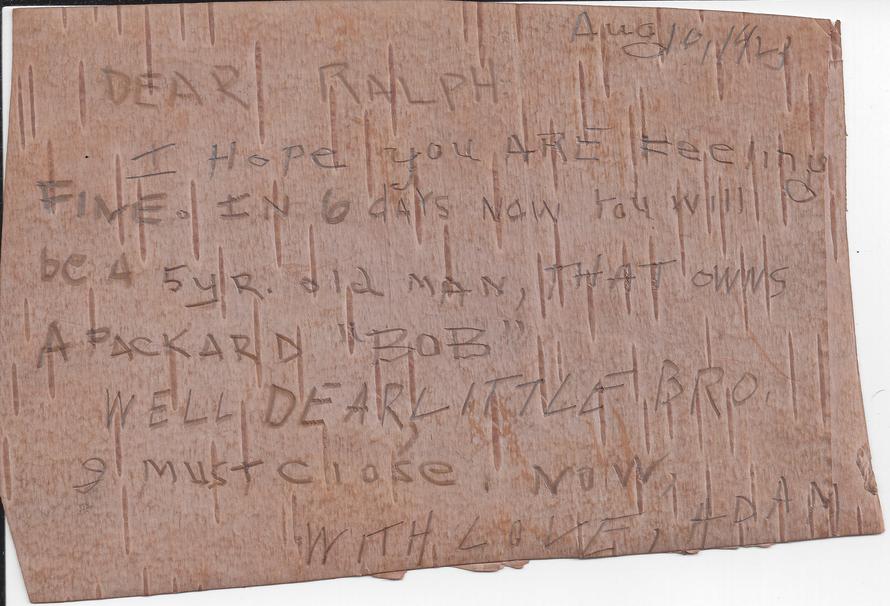 Aug
DEAR RALPH
I Hope you ARE Feeling
FINE. IN 6 dAYS NOW You will
be A 5yR. old MAN, THAT OWNS
A PACKARD "BOB"
WELL DEAR LITTLE BRO,
I MUST Close NOW,
WITH LOVE, ADAM